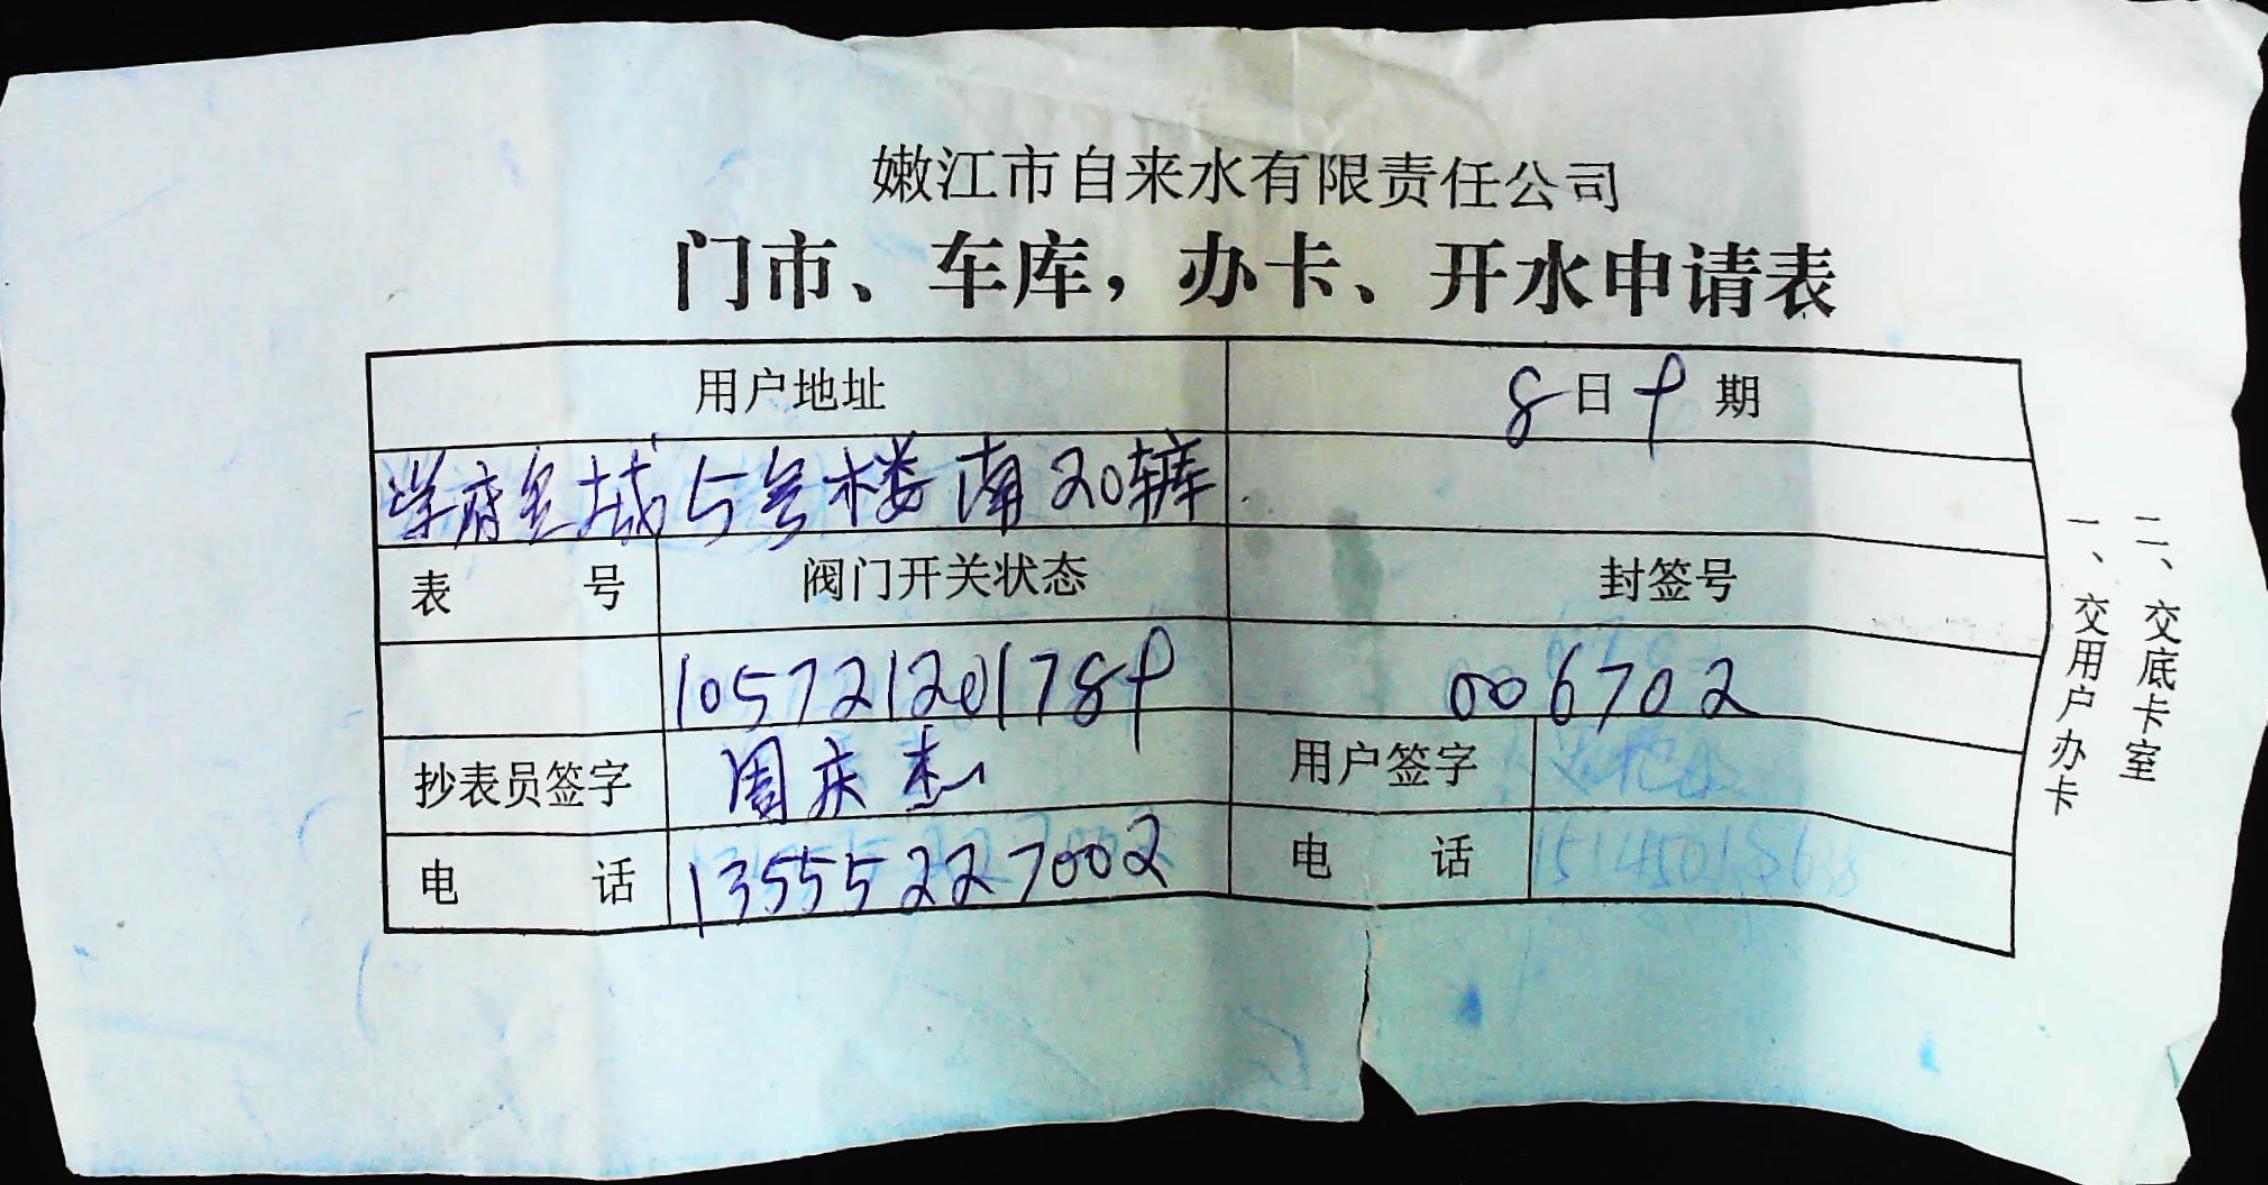 嫩江市自来水有限责任公司
门市、车库，办卡、开水申请表
用户地址 8日9期
学府名城5号楼南20车库
表 号 阀门开关状态 封签号
105721201789 006702
抄表员签字 周庆杰 用户签字
电 话 13555227002 电 话
一、交用户办卡
二、交底卡室